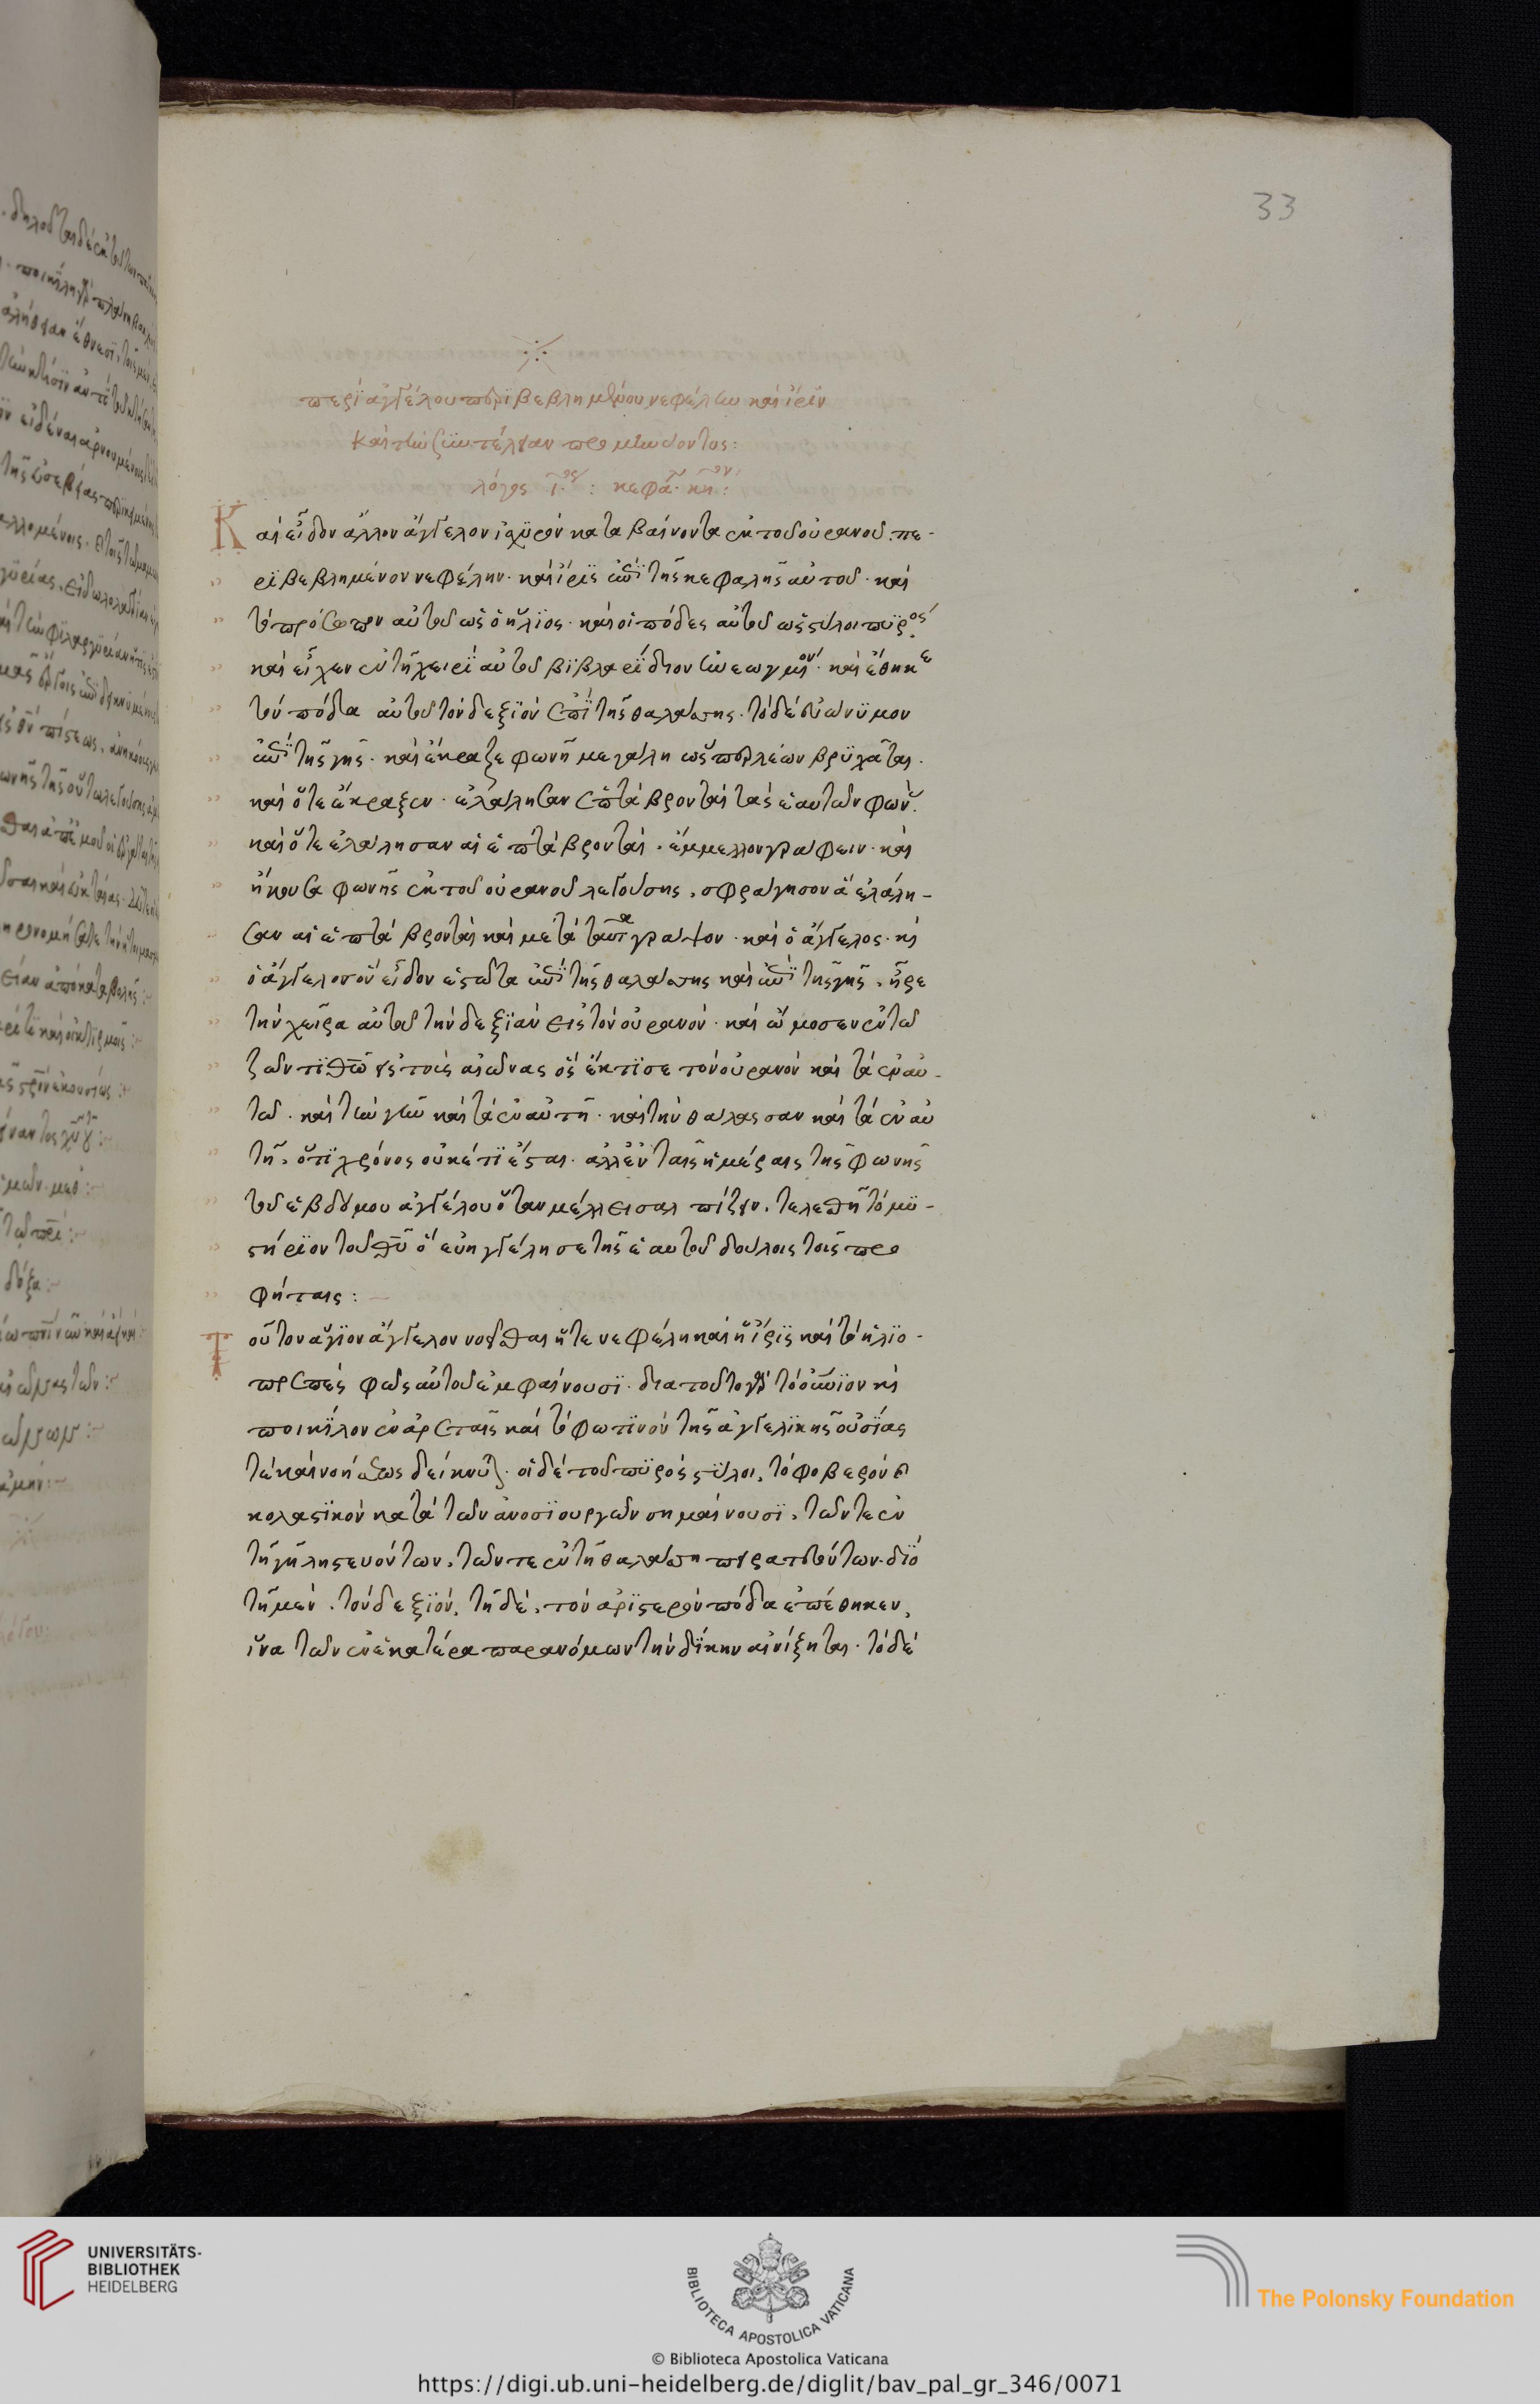 33
περὶ ἀγγέλου περϊβεβλημένου νεφέλην καὶ ἶρϊν
καὶ τὴν συντέλειαν προμηνύοντος:
λόγος ι·ος: κεφά· κη·ον:
Καὶ εἶδον ἄλλον ἄγγελον ἰσχϋρὸν καταβαίνοντα ἐκ τοῦ οὐρανοῦ. πε-
ρϊβεβλημένον νεφέλην· καὶ ἶρϊς ἐπῒ τῆς κεφαλῆς αὐτοῦ· καὶ
τὸ πρόσωπον αὐτοῦ ὡς ὁ ἥλϊος· καὶ οἱ πόδες αὐτοῦ ὡς στύλοι πϋρος
καὶ εἶχεν ἐν τῇ χειρῒ αὐτοῦ βϊβλαρΐδιον ἠνεωγμένον· καὶ ἔθηκε
τὸν πόδα αὐτοῦ τὸν δεξϊὸν ἐπῒ τῆς θαλάσσης· τὸ δὲ εὐώνϋμον
ἐπῒ τῆς γῆς· καὶ ἔκραξε φωνῇ μεγάλῃ ὥσπερ λέων βρϋχᾶται.
καὶ ὅτε ἔκραξεν· ἐλάλησαν ἑπτὰ βρονταὶ τὰς ἑαυτῶν φων.
καὶ ὅτε ἐλάλησαν αἱ ἑπτὰ βρονταὶ· ἔμμελλον γράφειν· καὶ
ἤκουσα φωνῆς ἐκ τοῦ οὐρανοῦ λεγούσης, σφράγησον ἃ ἐλάλη-
σαν αἱ ἑπτὰ βρονταὶ καὶ μετὰ ταῦτα γράψον· καὶ ὁ ἄγγελος· κὶ
ὁ ἄγγελος ὃν εἶδον ἑστῶτα ἐπῒ τῆς θαλάσσης καὶ ἐπῒ τῆς γῆς, ἦρε
τὴν χεῖρα αὐτοῦ τὴν δεξϊὰν εἰς τὸν οὐρανὸν· καὶ ὤμοσεν ἐν τῷ
ζῶντϊ θῶ εἰς τοὶς αἰώνας ὃς ἔκτϊσε τὸν οὐρανὸν καὶ τὰ ἐν αὐ-
τῷ. καὶ τὴν γῆν καὶ τὰ ἐν αὐτῇ· καὶ τὴν θάλασσαν καὶ τὰ ἐν αὐ
τῇ, ὅτϊ χρόνος οὐκέτϊ ἔσται· ἀλλ᾽ ἐν ταῖς ἡμέραις τῆς φωνῆς
τοῦ ἑβδόμου ἀγγέλου ὅταν μέλλει σαλπίζειν, τελεσθῇ τὸ μϋ-
στήρϊον τοῦ θῦ ὃ εὐηγγέλησε τῆς ἑαυτοῦ δούλοις τοῖς προ
φήταις:
Τοῦτον ἅγϊον ἄγγελον νοεῖσθαι ἥ τε νεφέλη καὶ ἡ ἶρϊς καὶ τὸ ἡλϊο-
πρεπὲς φῶς αὐτοῦ ἐμφαίνουσϊ· δια τοῦτο γὰρ τὸ οὐνϊον κὶ
ποικΐλον ἐν ἀρεταῖς καὶ τὸ φωτϊνὸν τῆς ἀγγελϊκῆς οὐσΐας
τὲ καὶ νοήσεως δείκνυται. οἱ δὲ τοῦ πϋρὸς στϋλοι, τὸ φοβερὸν καὶ
κολαστϊκὸν κατὰ τῶν ἀνοσϊουργῶν σημαίνουσϊ, τῶν τε ἐν
τῇ γῇ ληστευόντων, τῶν τε ἐν τῇ θαλάσσῃ πειρατευόντων. δϊὸ
τῇ μὲν, τὸν δεξϊὸν, τῇ δὲ, τὸν ἀρϊστερὸν πόδα ἐπέθηκεν,
ἵνα τῶν ἐν ἑκατέρα παρανόμων τὴν δΐκην αἰνίξηται· τὸ δὲ
UNIVERSITÄTS-
BIBLIOTHEK
HEIDELBERG
BIBLIOTECA APOSTOLICA VATICANA
© Biblioteca Apostolica Vaticana
The Polonsky Foundation
https://digi.ub.uni-heidelberg.de/diglit/bav_pal_gr_346/0071